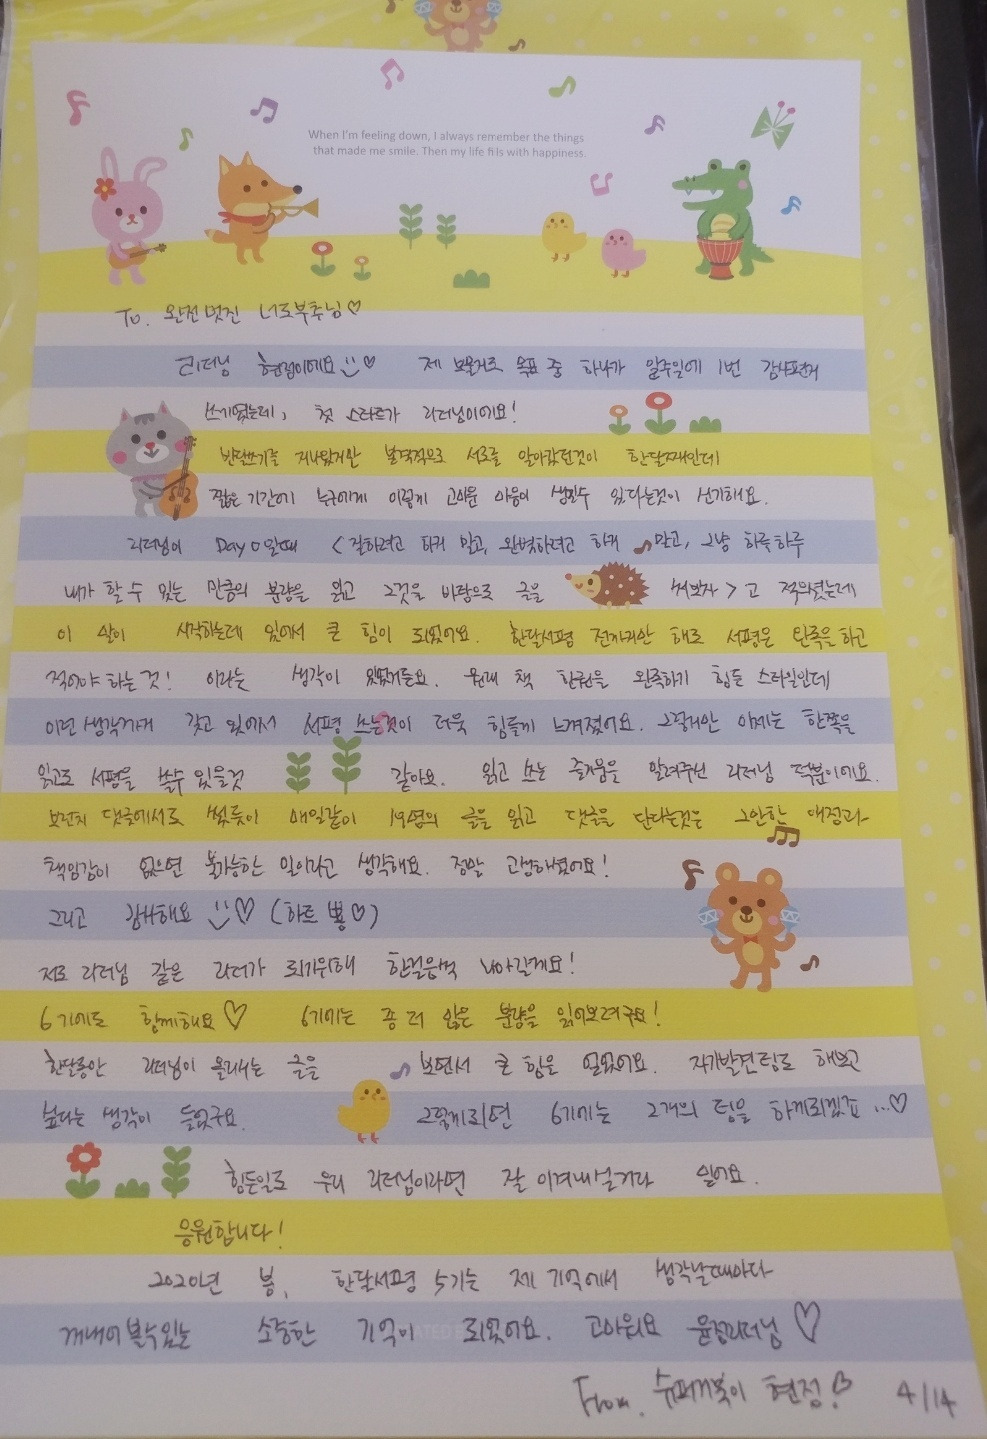 When I'm feeling down, I always remember the things
that made me smile. Then my life fills with happiness.
To. 완전 멋진 너도부추님♡
리더님 현정이에요 :) ♡ 제 보물지도 목표 중 하나가 일주일에 1번 감사편지
쓰기였는데, 첫 스타트가 리더님이에요!
반달쓰기를 지나왔지만 본격적으로 서로를 알아갔던것이 한달째인데
짧은 기간에 누군에게 이렇게 고마운 마음이 생길수 있다는것이 신기해요.
리더님이 Day 0 일때 <잘하려고 하지 말고, 완벽하려고 하지 말고, 그냥 하루하루
내가 할 수 있는 만큼의 분량을 읽고 그것을 바탕으로 글을 써보자>고 적으셨는데
이 말이 시작하는데 있어서 큰 힘이 되었어요. 한달서평 전까지만 해도 서평은 완독을 하고
적어야 하는 것! 이라는 생각이 있었거든요. 원래 책 한권을 완독하기 힘든 스타일인데
이런 생각까지 갖고 있어서 서평 쓰는것이 더욱 힘들게 느껴졌어요. 그렇지만 이제는 한쪽을
읽고도 서평을 쓸수 있을것 같아요. 읽고 쓰는 즐거움을 알려주신 리더님 덕분이에요.
댓글에서도 썼듯이 매일같이 19명의 글을 읽고 댓글을 단다는것은 그만한 애정과
책임감이 없으면 불가능한 일이라고 생각해요. 정말 고생하셨어요!
그리고 감사해요 :) ♡ (하트 뿅♡)
저도 리더님 같은 리더가 되기위해 한걸음씩 나아갈게요!
6기에도 함께해요♡ 6기에는 좀 더 많은 분량을 읽어보려구요!
한달동안 리더님이 올리시는 글을 보면서 큰 힘을 얻었어요. 자기발견팀도 해보고
싶다는 생각이 들었구요. 그렇게되면 6기에는 2개의 팀을 하게되겠죠...♡
힘든일도 우리 리더님이라면 잘 이겨내실거라 믿어요.
응원합니다!
2020년 봄, 한달서평 5기는 제 기억에서 생각날때마다
꺼내어볼수있는 소중한 기억이 되었어요. 고마워요 윤정리더님♡
From. 슈퍼거북이 현정♡ 4/14